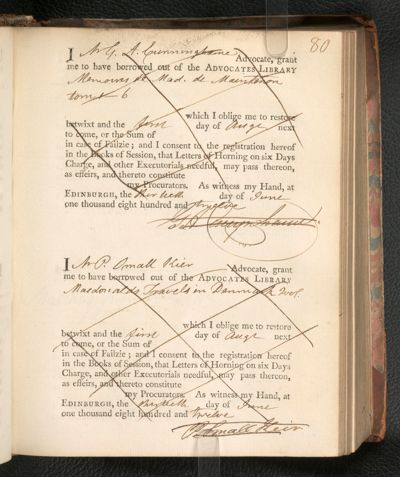 80
I Mr G. A. Cunninghame Advocate, grant
me to have borrowed out of the ADVOCATES LIBRARY
Memoires de Mad. de Maintenon
tom 6
which I oblige me to restore
betwixt and the first day of Augt next
to come, or the Sum of
in case of Failzie ; and I consent to the registration hereof
in the Books of Session, that Letters of Horning on six Days
Charge, and other Executorials needful, may pass thereon,
as effeirs, and thereto constitute
my Procurators. As witness my Hand, at
EDINBURGH, the day of June
one thousand eight hundred and twelve
Cunninghame
I Mr P. Small Keir Advocate, grant
me to have borrowed out of the ADVOCATES LIBRARY
Macdonalds Travels in Denmark 2vol.
which I oblige me to restore
betwixt and the first day of Augt next
to come, or the Sum of
in case of Failzie ; and I consent to the registration hereof
in the Books of Session, that Letters of Horning on six Days
Charge, and other Executorials needful, may pass thereon,
as effeirs, and thereto constitute
my Procurators. As witness my Hand, at
EDINBURGH, the day of June
one thousand eight hundred and twelve
P. Small Keir